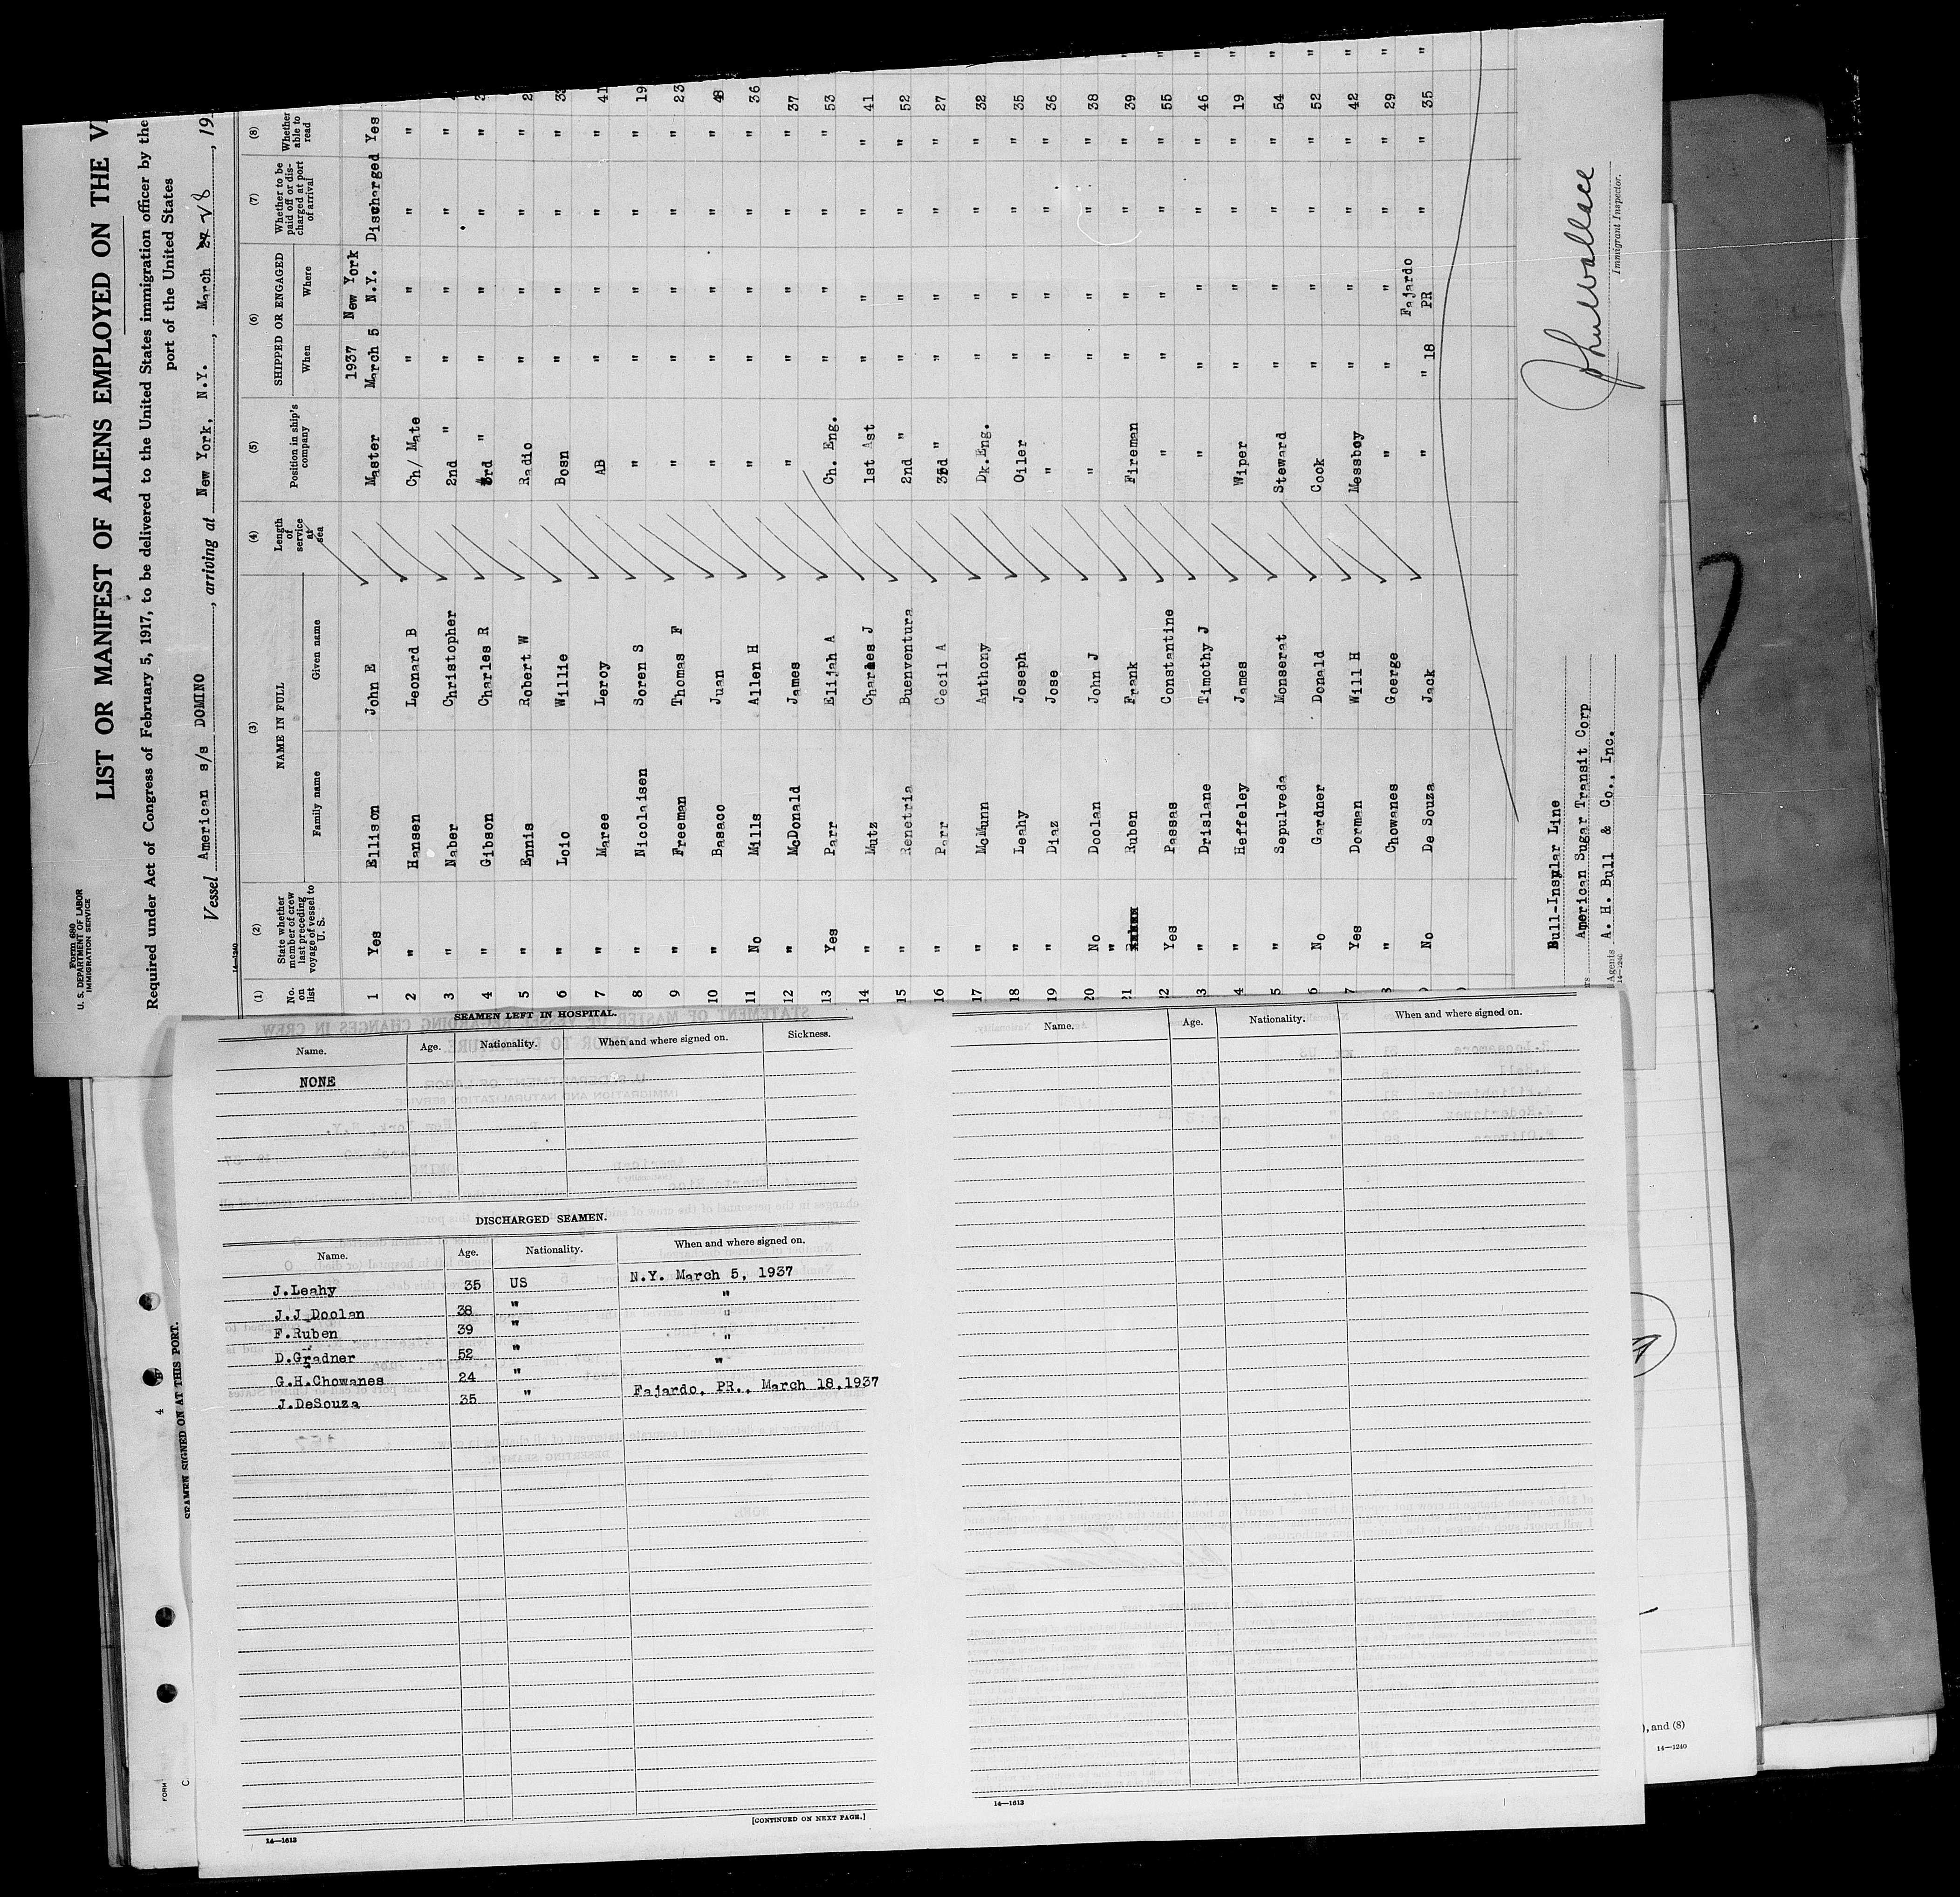 Form 680
U. S. DEPARTMENT OF LABOR
IMMIGRATION SERVICE
LIST OR MANIFEST OF ALIENS EMPLOYED ON THE
Required under Act of Congress of February 5, 1917, to be delivered to the United States immigration officer by the
port of the United States
Vessel American s/s DOMINO, arriving at New York, N.Y., March 28, 19
14-1240
(1) (2) (3) (4) (5) (6) (7) (8)
No. on list
State whether member of crew last preceding voyage of vessel to U. S.
NAME IN FULL
Family name Given name
Length of service at sea
Position in ship's company
SHIPPED OR ENGAGED
When Where
Whether to be paid off or discharged at port of arrival
Whether able to read
1937 New York
1 Yes Ellison John E Master March 5 N.Y. Discharged Yes
2 " Hansen Leonard B Ch/ Mate " " " "
3 " Naber Christopher 2nd " " " " "
4 " Gibson Charles R 3rd " " " " "
5 " Ennis Robert W Radio " " " "
6 " Loio Willie Bosn " " " "
7 " Maree Leroy AB " " " " 41
8 " Nicolaisen Soren S " " " " " 19
9 " Freeman Thomas F " " " " " 23
10 " Basaco Juan " " " " " 48
11 No Mills Allen H " " " " " 36
12 " McDonald James " " " " " 37
13 Yes Parr Elijah A Ch. Eng. " " " " 53
14 " Mutz Charles J 1st Ast " " " " 41
15 " Renetria Buenventura 2nd " " " " " 52
16 " Parr Cecil A 3rd " " " " " 27
17 " McMunn Anthony Dk.Eng. " " " " 32
18 " Leahy Joseph Oiler " " " " 35
19 " Diaz Jose " " " " " 36
20 No Doolan John J " " " " " 38
21 " Ruben Frank Fireman " " " " 39
22 Yes Passas Constantine " " " " " 55
3 " Drislane Timothy J " " " " " 46
4 " Heffeley James Wiper " " " " 19
5 " Sepulveda Monserat Steward " " " " 54
6 No Gardner Donald Cook " " " " 52
7 Yes Dorman Will H Messboy " " " " 42
8 " Chowanes Goerge " " " " " 29
Fajardo
9 No De Souza Jack " " 18 PR " " 35
Bull-Insular Line
American Sugar Transit Corp
Agents A. H. Bull & Co., Inc.
14-1240
John Wallace
Immigrant Inspector.
SEAMEN LEFT IN HOSPITAL.
Name. Age. Nationality. When and where signed on. Sickness.
NONE
DISCHARGED SEAMEN.
Name. Age. Nationality. When and where signed on.
J.Leahy 35 US N.Y. March 5, 1937
J.J.Doolan 38 " "
F.Ruben 39 " "
D.Gradner 52 " "
G.H.Chowanes 24 " "
J.DeSouza 35 " Fajardo, PR., March 18,1937
[CONTINUED ON NEXT PAGE.]
14—1613
Name. Age. Nationality. When and where signed on.
14—1613
SEAMEN SIGNED ON AT THIS PORT.
FORM
C.
4
), and (8)
14—1240